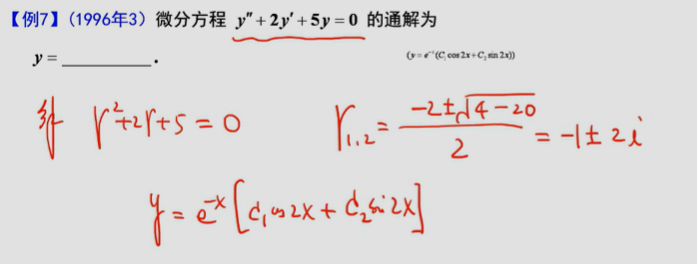 【例7】(1996年3) 微分方程 y″+2y′+5y=0 的通解为
y=________. (y=e⁻ˣ(C₁cos2x+C₂sin2x))
解 r²+2r+5=0 r₁,₂=(-2±√(4-20))/2=-1±2i
y=e⁻ˣ[C₁cos2x+C₂sin2x]